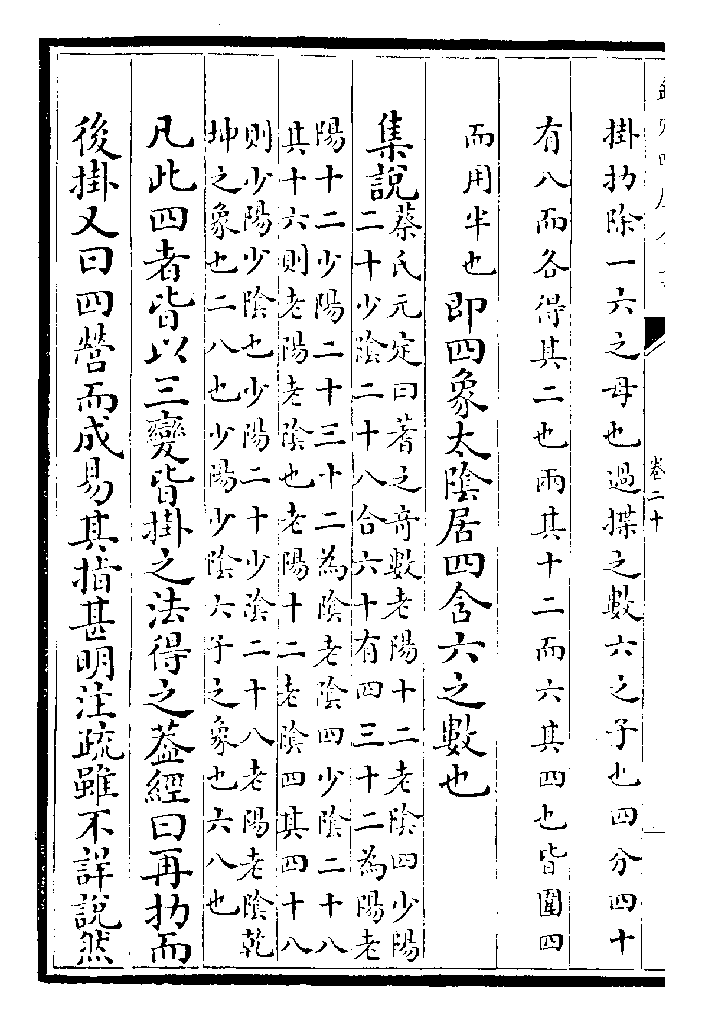 卷二十
掛扐除一六之母也過揲之數六之子也四分四十
有八而各得其二也兩其十二而六其四也皆圍四
而用半也
即四象太陰居四含六之數也
集說
蔡氏元定曰蓍之奇數老陽十二老陰四少陽
二十少陰二十八合六十有四三十二為陽老
陽十二少陽二十三十二為陰老陰四少陰二十八
其十六則老陽老陰也老陽十二老陰四其四十八
則少陽少陰也少陽二十少陰二十八老陽老陰乾
坤之象也二八也少陽少陰六子之象也六八也
凡此四者皆以三變皆掛之法得之葢經曰再扐而
後掛又曰四營而成易其指甚明注疏雖不詳說然